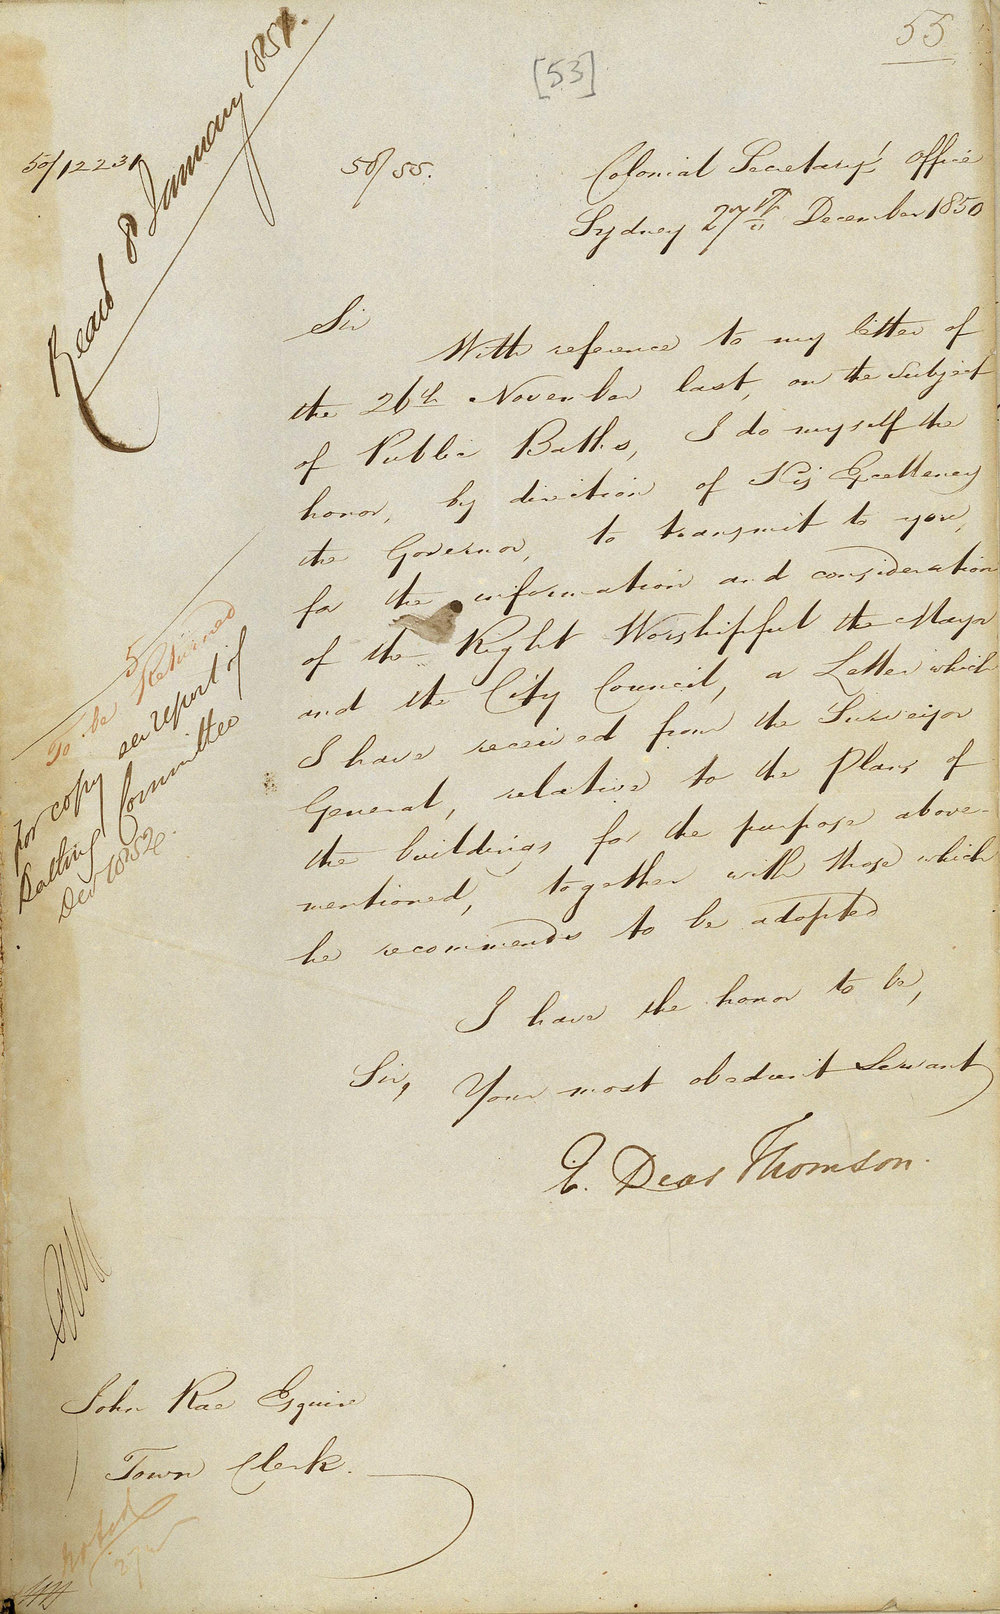 55
[53]
Read 8 January 1851.
50/12231
50/55.
Colonial Secretary's Office
Sydney 27th December 1850
Sir
With reference to my letter of
the 26th November last, on the subject
of Public Baths, I do myself the
honor, by direction of His Excellency
the Governor, to transmit to you,
for the information and consideration
of the Right Worshipful the Mayor
and the City Council, a Letter which
I have received from the Surveyor
General, relative to the Plans of
the buildings for the purpose above-
mentioned, together with those which
he recommends to be adopted
I have the honor to be,
Sir,
Your most obedient Servant
E. Deas Thomson.
5
To be Returned
for copy see report of
Bathing Committee
Dec 1852.
John Rae Esquire
Town Clerk.
noted